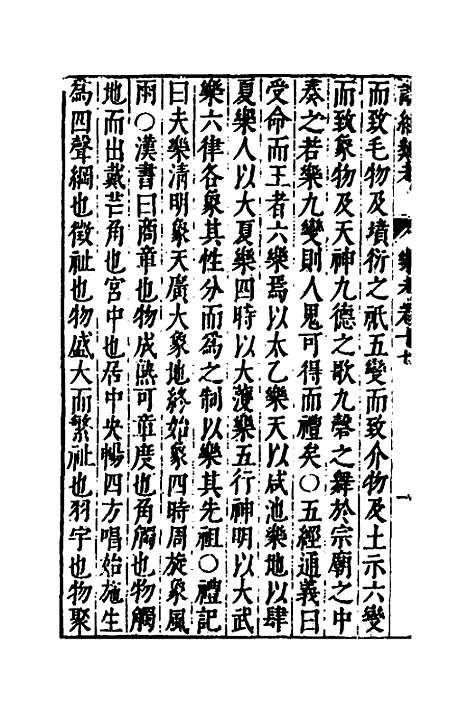 而致毛物及墳衍之祇五變而致介物及土示六變
而致象物及天神九德之歌九磬之舞於宗廟之中
奏之若樂九變則人鬼可得而禮矣○五經通義曰
受命而王者六樂焉以太乙樂天以咸池樂地以肆
夏樂人以大夏樂四時以大濩樂五行神明以大武
樂六律各象其性分而爲之制以樂其先祖○禮記
曰夫樂清明象天廣大象地終始象四時周旋象風
雨○漢書曰商章也物成熟可章度也角觸也物觸
地而出戴芒角也宮中也居中央暢四方唱始施生
爲四聲綱也徵祉也物盛大而繁祉也羽字也物聚